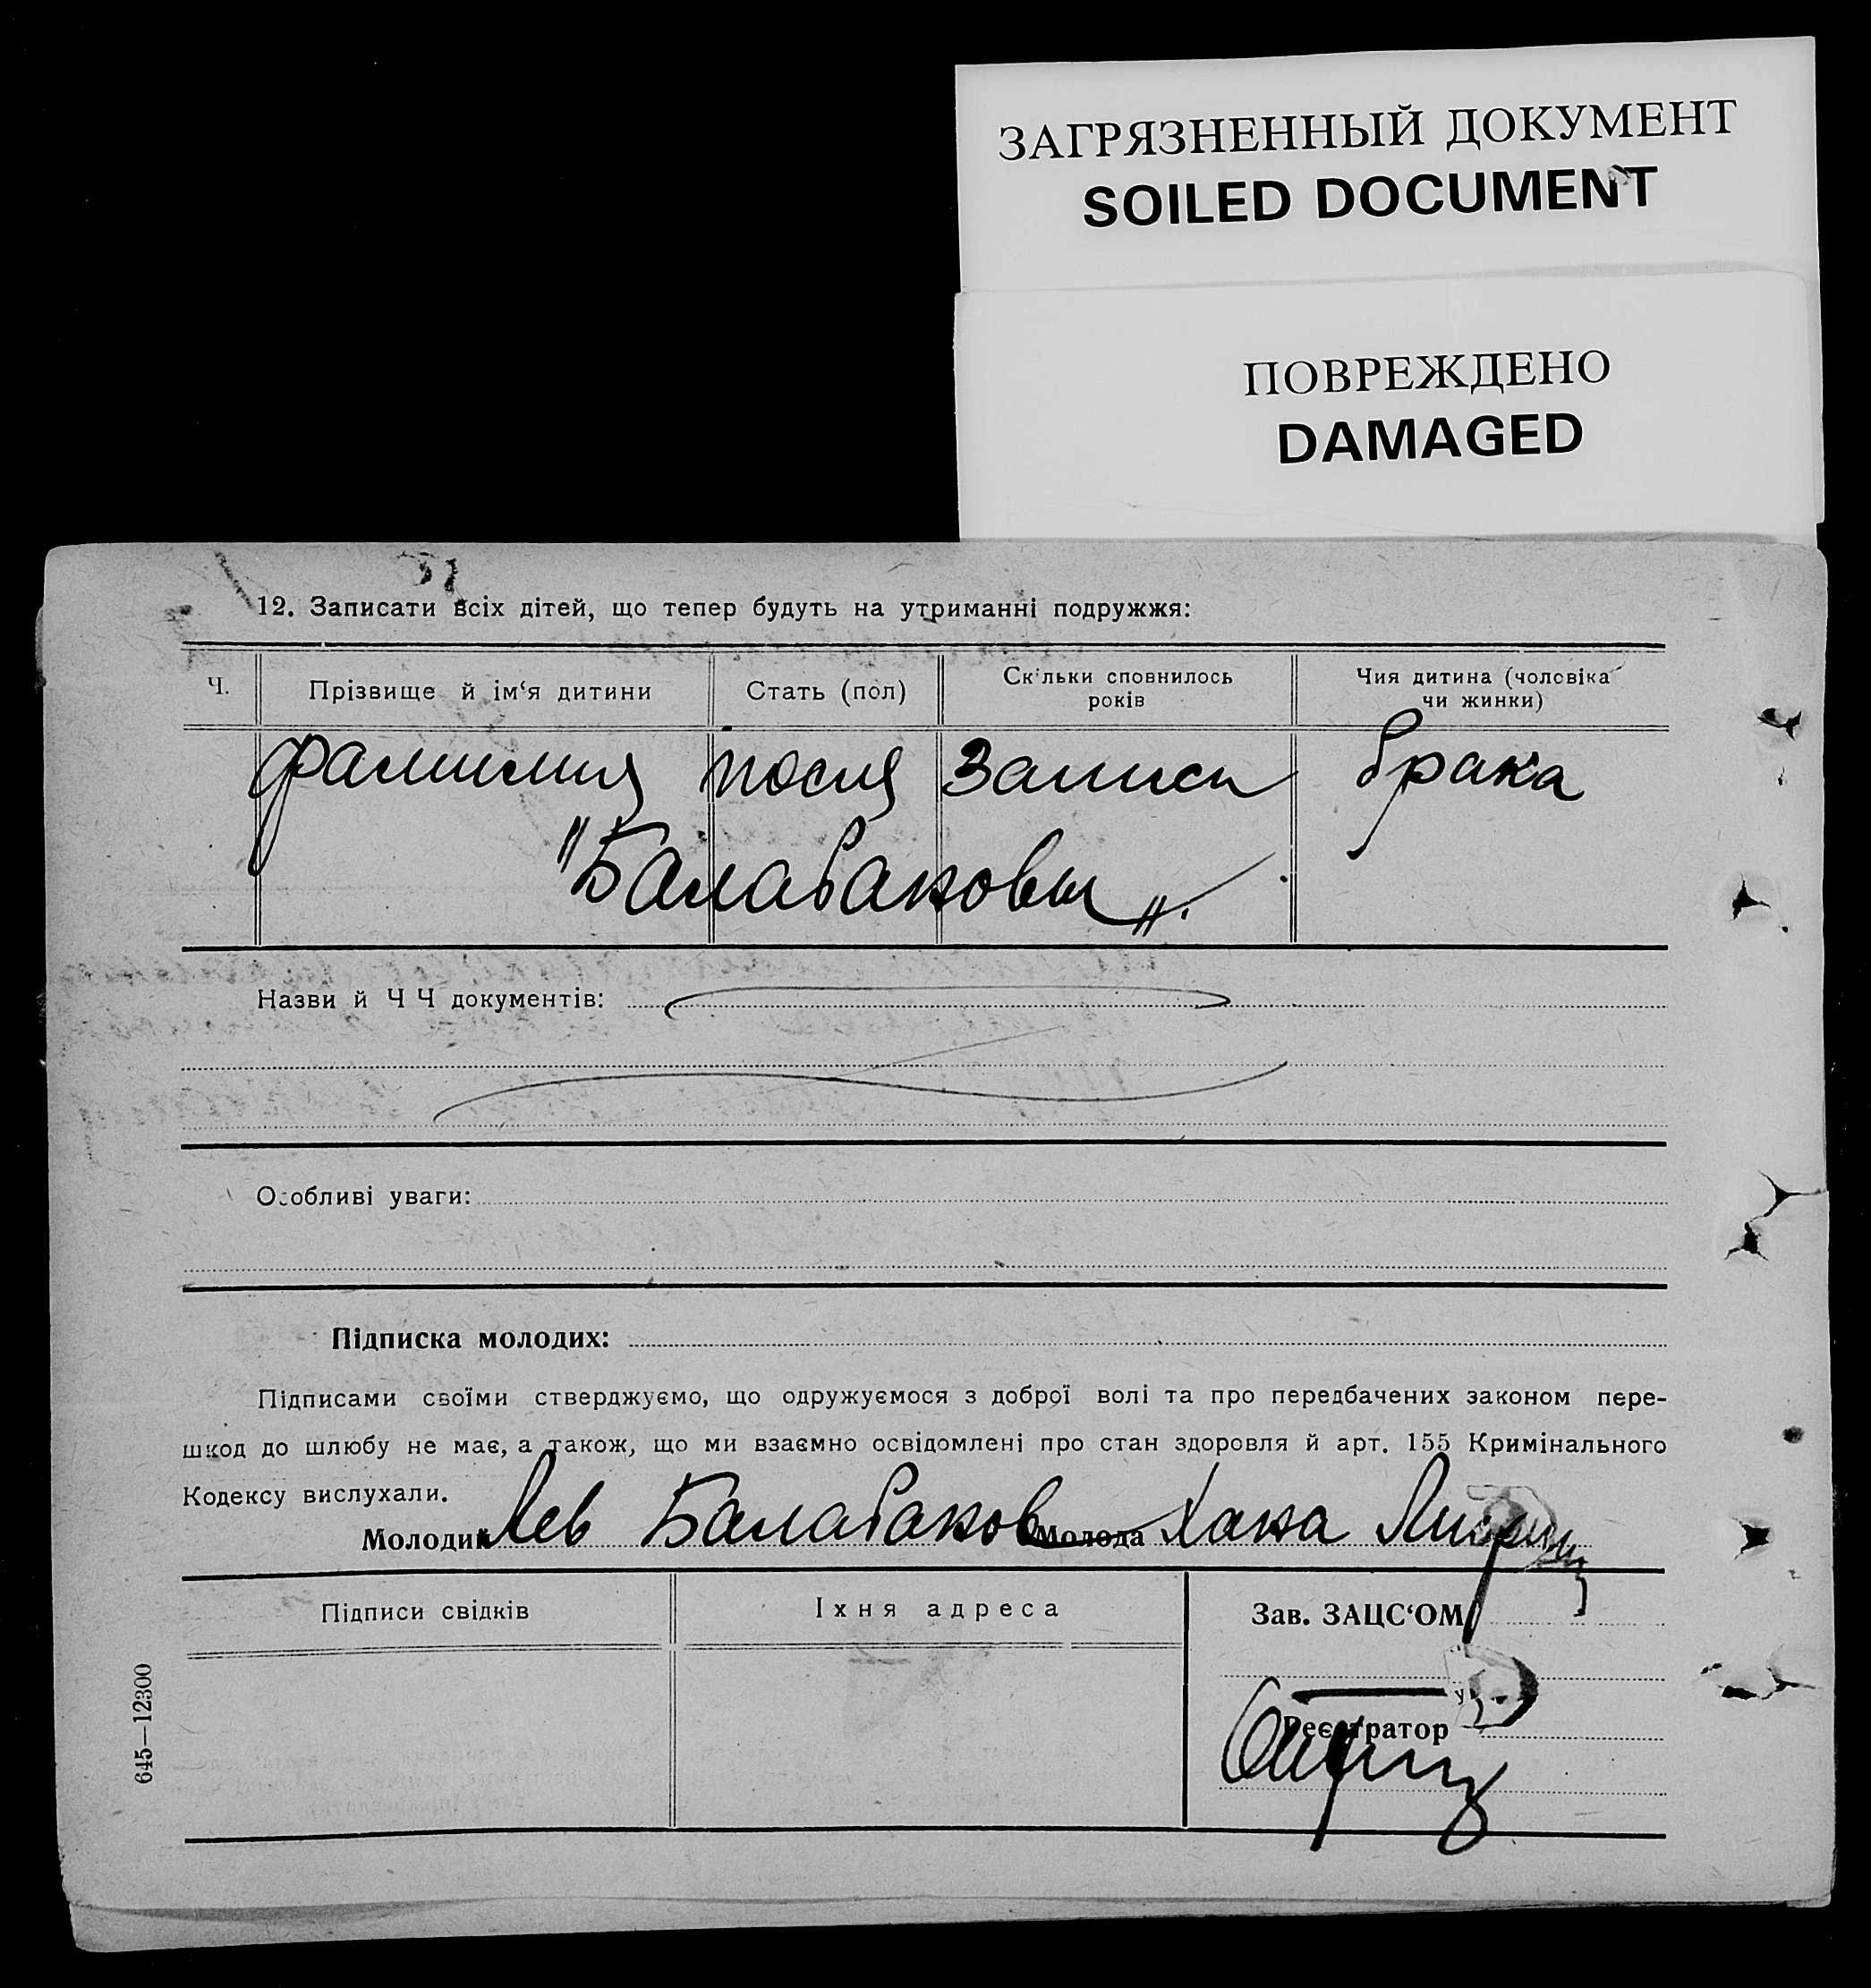 ЗАГРЯЗНЕННЫЙ ДОКУМЕНТ
SOILED DOCUMENT
ПОВРЕЖДЕНО
DAMAGED
12. Записати всіх дітей, що тепер будуть на утриманні подружжя:
Ч. Прізвище й ім‘я дитини Стать (пол) Скільки сповнилось років Чия дитина (чоловіка чи жинки)
фамилия после записи брака
"Балабановы".
Назви й Ч Ч документів:
Особливі уваги:
Підписка молодих:
Підписами своїми стверджуємо, що одружуємося з доброї волі та про передбачених законом пере-
шкод до шлюбу не має, а також, що ми взаємно освідомлені про стан здоровля й арт. 155 Кримінального
Кодексу вислухали.
Молодий Лев Балабанов Молода Хана
Підписи свідків Їхня адреса Зав. ЗАЦС‘ОМ
Реєстратор
645—12300